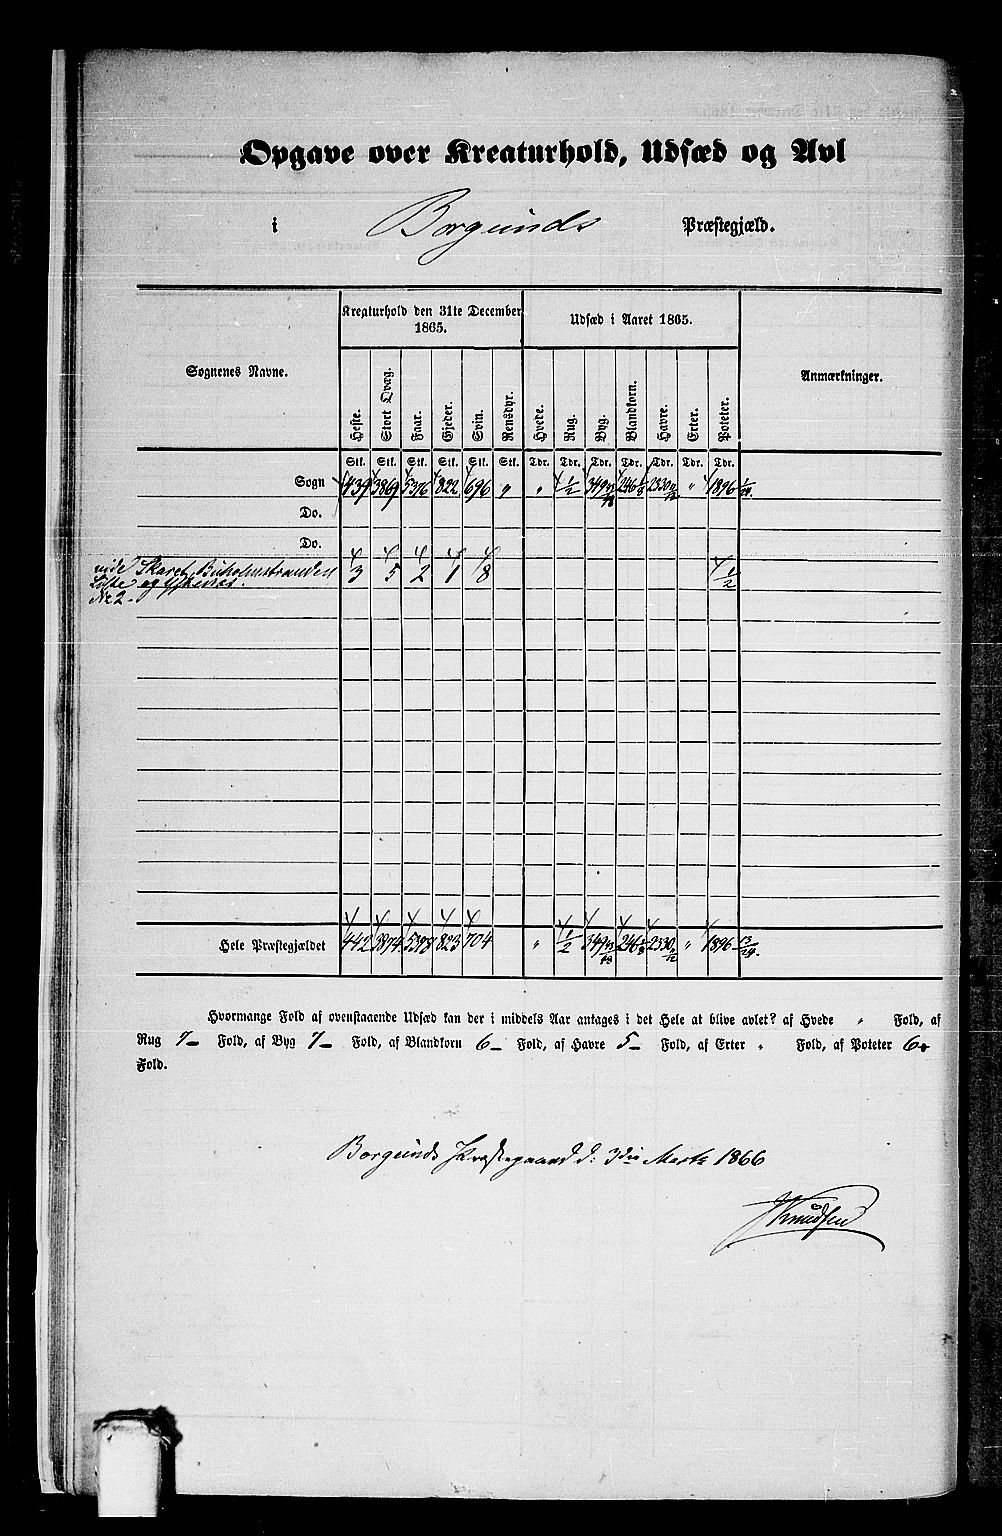 Opgave over Kreaturhold, Udsæd og Avl
i Borgunds Præstegjæld.
Sognenes Navne.
Kreaturhold den 31te December 1865.
Udsæd i Aaret 1865.
Anmærkninger.
Heste. Stort Qvæg. Faar. Gjeder. Svin. Rensdyr. Hvede. Rug. Byg. Blandkorn. Havre. Erter. Poteter.
Stk. Stk. Stk. Stk. Stk. Stk. Tdr. Tdr. Tdr. Tdr. Tdr. Tdr. Tdr.
Sogn 439 3869 5376 822 696 „ „ 1/2 349 246 2330 „ 1896 1/24
Do.
Do.
vide Skaret, Buholmstranden 3 5 2 1 8 1/2
Liste og
No 2.
Hele Præstegjældet 442 3874 5378 823 704 „ 1/2 349 246 2330 „ 1896 13/24.
Hvormange Fold af ovenstaaende Udsæd kan der i middels Aar antages i det Hele at blive avlet? af Hvede „ Fold, af
Rug 7 Fold, af Byg 7 Fold, af Blandkorn 6 Fold, af Havre 5 Fold, af Erter „ Fold, af Poteter 6
Fold.
Borgunds Præstegaard d: 3die Marts 1866
Knudsen